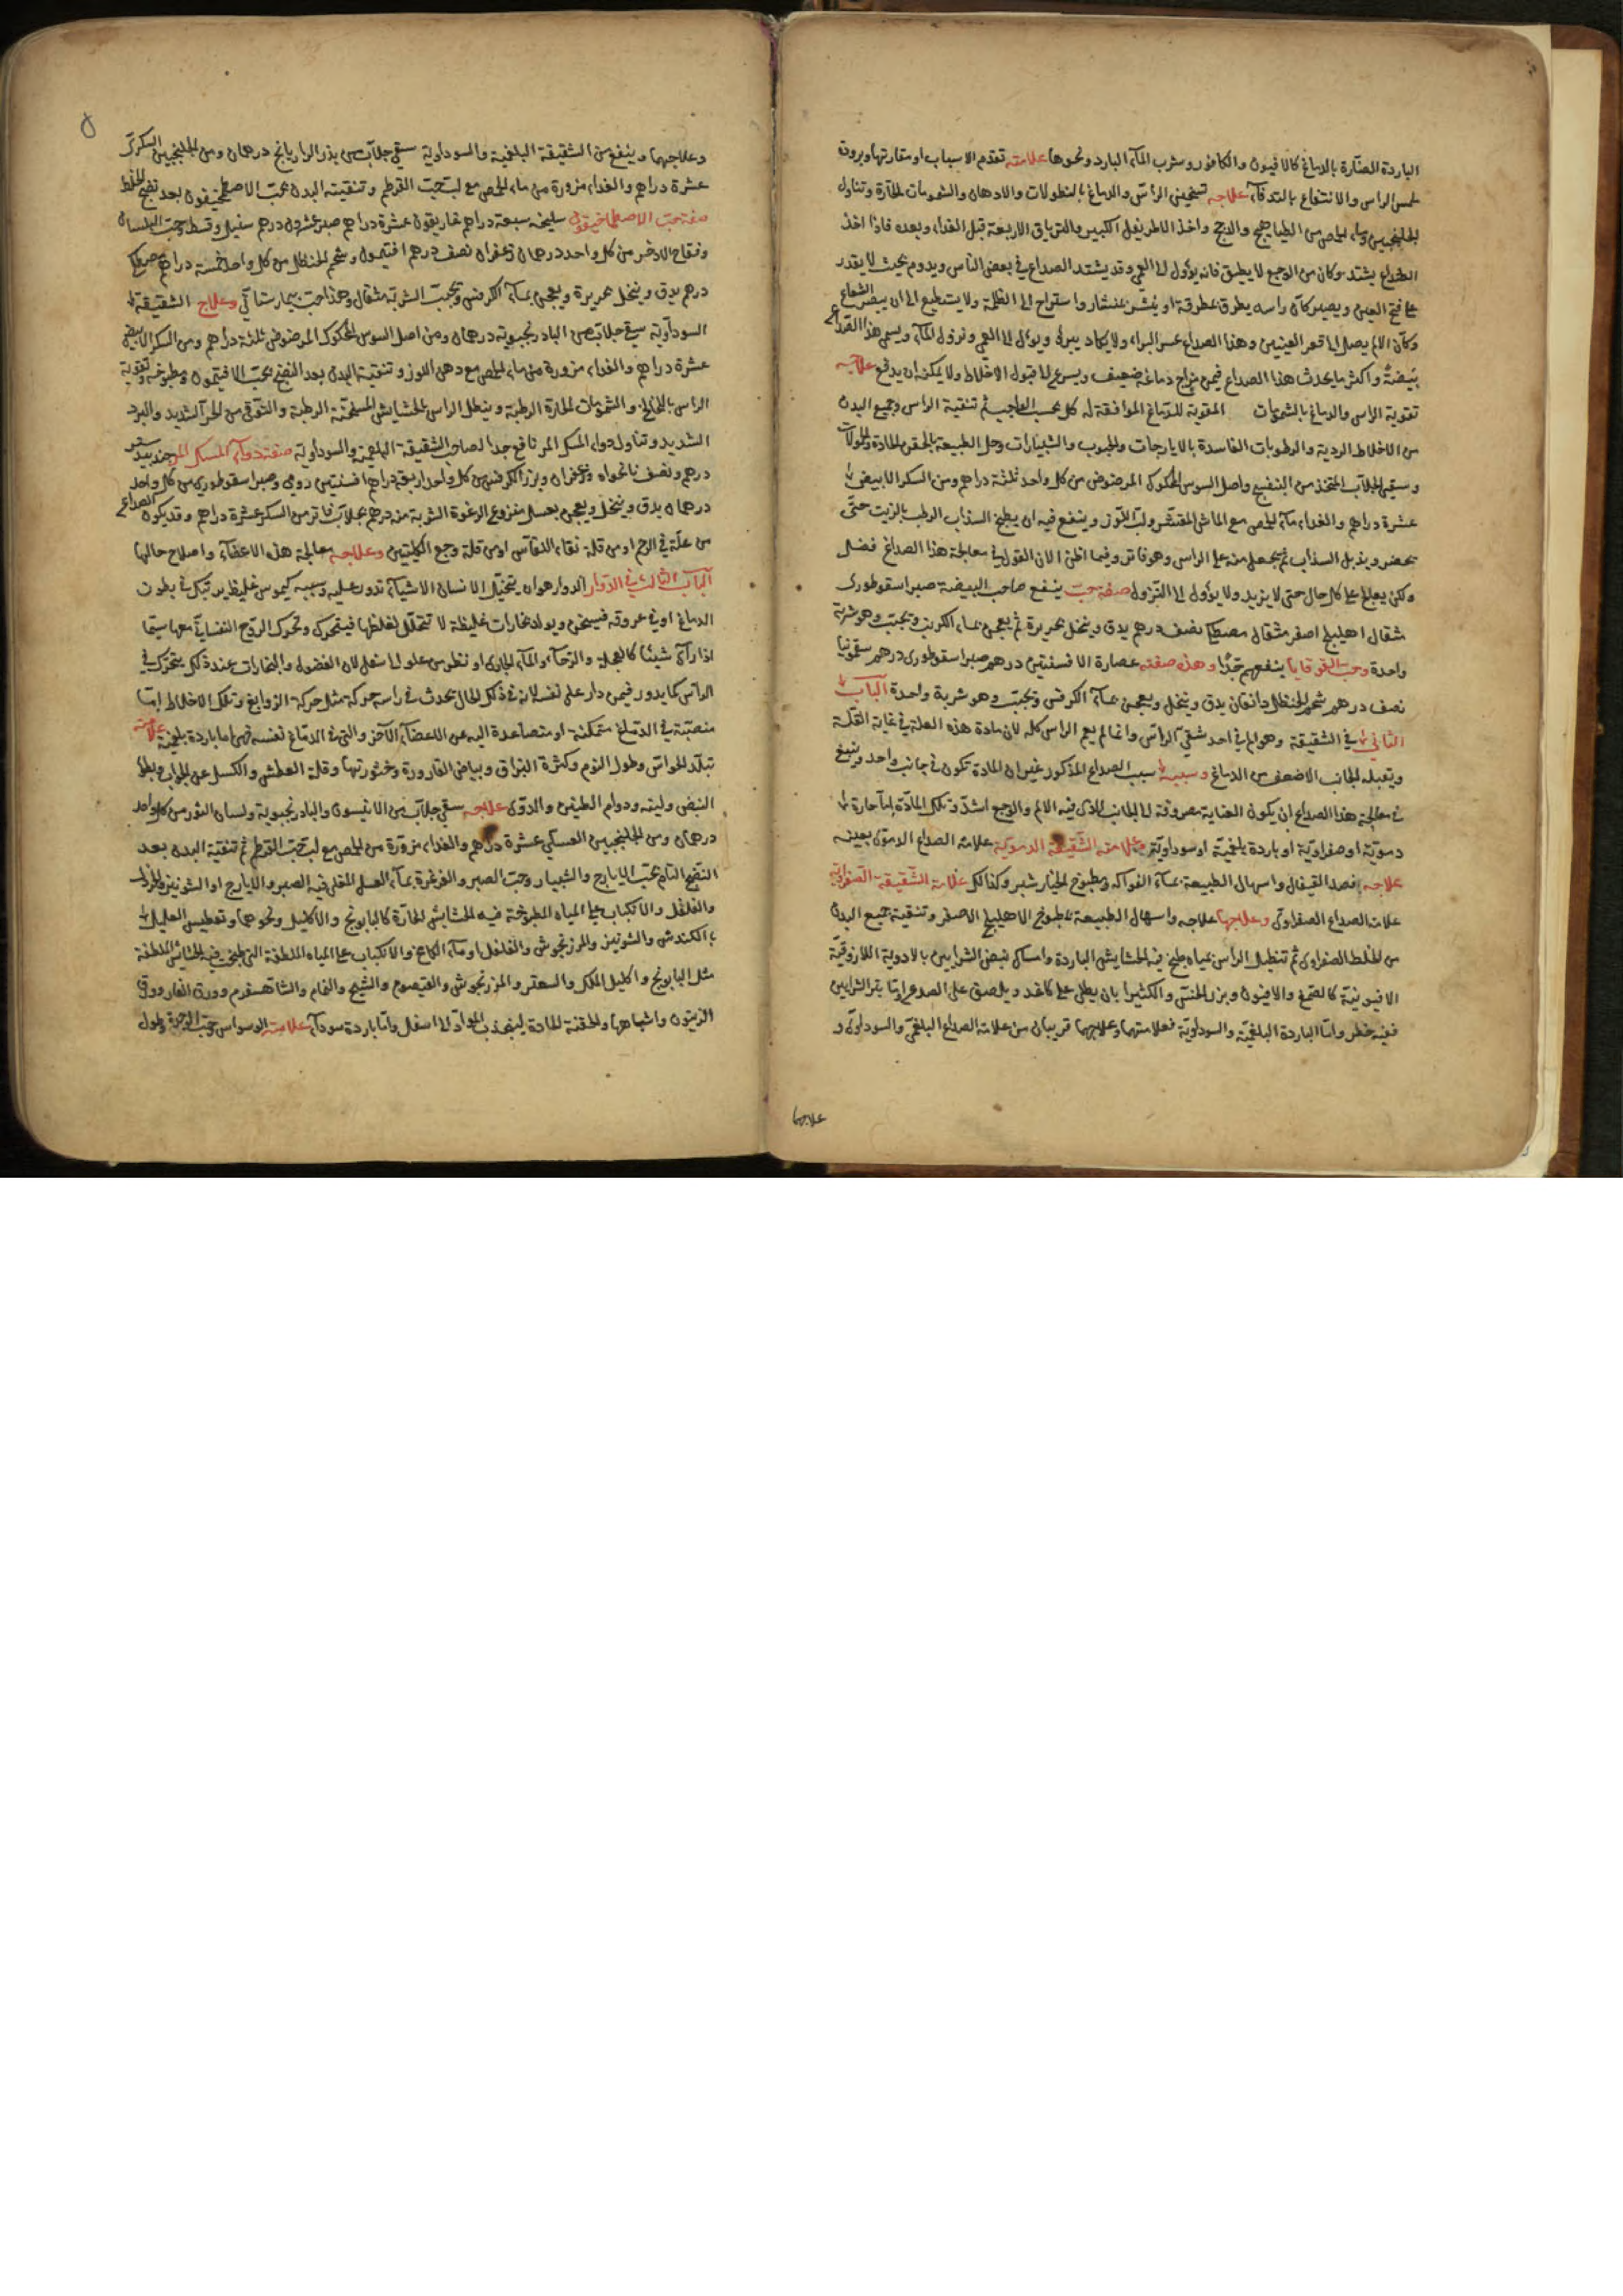 الباردة الضّارة بالدماغ كالافيون والكافور وشرب المآء البارد ونحوها علامته تقدم الاسباب او مقارنتها وبرودة
لمس الراس والانتفاع بالتدفآء علاجه تسخين الرأس والدماغ بالنطولات والادهان والشمومات الحارّة وتناول
الجلنجبين وماء الحمص من الطياهيج والدجج واخذ الاطريفل الكبير والترياق الاربعة قبل الغذاء وبعده فاذا اخذ
الصداع يشتد وكان من الوجع لا يطيق فانه يؤول الى العمى وقد يشتد الصداع في بعض الناس ويدوم بحيث لا يقدر
على فتح العين ويصير كأن راسه يطرق بمطرقة او ينشر بمنشار واستراح الى الظلمة ولا يستطيع الى ان يبصر الشعاع
وكأن الالم يصل الى قعر العينين وهذا الصداع عسر البراء ولا يكاد يبرئ ويؤل الى العمى ونزول المآء ويسمى هذا الصداع
بيضة واكثر ما يحدث هذا الصداع فيمن مزاج دماغه ضعيف ويسرع الى قبول الاخلاط ولا يمكنه ان يدفع علاجه
تقوية الراس والدماغ بالشمومات المقوية للدّماغ الموافقة له كل بحسب الواجب ثم تنقية الراس وجميع البدن
من الاخلاط الردية والرطوبات الفاسدة بالايارجات والحبوب والشبيارات وحل الطبيعة بالحقن الحادة والحمولات
وسقى الجلاب المتخذ من البنفسج واصل السوس المحكوك المرضوض من كل واحد ثلثة دراهم ومن السكر الابيض
عشرة دراهم والغذاء مآء الحمص مع الماش المقشّر ولبّ اللّوز وينفع فيه ان يطبخ السذاب الرطب بالزيت حتّى
يخضر ويذبل السذاب ثم يجعل منه على الراس وهو فاتر وفيما اظن الآن القول في معالجة هذا الصداغ فضل
ولكن يعالج على كل حال حتى لا يزيد ولا يؤول الى النّزول صفة حب ينفع صاحب البيضة صبر اسقوطورى
مثقال اهليلج اصفر مثقال مصطكا نصف درهم يدق وينخل بحريرة ثم يعجن بماء الكرنب ويحبّب وهو شربة
واحدة وحبّ القوقايا ينفعهم جدّا وهذه صفته عصارة الافسنتين درهم صبر اسقوطورى درهم سقمونيا
نصف درهم شحم الحنظل دانقان يدق وينخل ويعجن بمآء الكرفس ويحبّب وهو شربة واحدة الباب
الثاني في الشقيقة وهو الم في احد شقى الرأس وانما لم يعم الراس كله لان مادة هذه العلة في غاية القلّة
ويقبله الجانب الاضعف من الدماغ وسببه سبب الصداع المذكور غير ان المادة تكون في جانب واحد وينبغى
في معالجة هذا الصداع ان يكون العناية مصروفة الى الجانب الذى فيه الالم والوجع اشدّ وتلك المادّة امّا حارة
دموية او صفراويّة او باردة بلغميّة او سوداويّة علامة الشقيقة الدمويّة علامة الصداع الدموى بعينه
علاجه فصد القيفال واسهال الطبيعة بمآء الفواكه ومطبوخ الخيار شنبر وكذالك علامة الشّقيقة الصفراوية
علامة الصداع الصفراوى وعلاجها علاجه واسهال الطبيعة بمطبوخ الاهليلج الاصفر وتنقية جميع البدن
من الخلط الصفراوى ثم تنطيل الراس بمياه طبخ فيه الحشايش الباردة وامساك نبض الشرايين بالادوية اللازوقيّة
الافيونيّة كالصّمغ والافيون وبزر الخسّ والكثيرا بان يطلى على كاغد ويلصق على الصدع وامّا بتر الشرايين
ففيه خطر وامّا الباردة البلغميّة والسوداويّة فعلامتهما وعلاجهما قريبان من علامة الصداع البلغمى والسوداوى و
علاجهما
وعلاجهما وينفع من الشقيقة البلغمية والسوداوية سقى جلاب من بزر الرازيانج درهمان ومن الجلنجبين السكرى
عشرة دراهم والغذاء مزورة من ماء الحمص مع لبّ حبّ القرطم وتنقية البدن بحبّ الاصطمخيقون بعد نضج الخلط
صفة حبّ الاصطماخيقون سليخه سبعة دراهم غاريقون عشرة دراهم صبر عشرون درهم سنبل وقسط وحب البلسان
وفقاح الاذخر من كل واحد درهمان زعفران نصف درهم افتيمون وشحم الحنظل من كل واحد خمسة دراهم مصطكا
درهم يدق وينخل بحريرة ويعجن بمآء الكرفس ويحبّب الشربة مثقال وهذا حبّ بيمارستانى وعلاج الشقيقة
السوداوية سقى جلاب من البادرنجبوية درهمان ومن اصل السوس المحكوك المرضوض ثلثة دراهم ومن السكر الابيض
عشرة دراهم والغذاء مزورة من ماء الحمص مع دهن اللوز وتنقية البدن بعد النضج بحبّ الافتيمون ومطبوخه وتقوية
الراس بالخالخ والشمومات الحارة الرطبة وينطل الراس بالحشايش المسخّنة الرطبة والتوقى من الحر الشديد والبرد
الشديد وتناول دواء المسك المر نافع جدا لصاحب الشقيقة البلغمية والسوداوية صفة دوآء المسك المر جندبيدستر
درهم ونصف نانخواه وزعفران وبزر الكرفس من كل واحد اربعة دراهم افسنتين رومى وصبر اسقوطورى من كل واحد
درهمان يدق وينخل ويعجن بعسل منزوع الرغوة الشربة منه درهم بجلاب فاتر من السكر عشرة دراهم وقد يكون الصداع
من علّة في الرحم او من قلة نقاء النفاس او من قلة وجع الكليتين وعلاجه معالجة هذه الاعضآء واصلاح حالها
الباب الثالث في الدّوار الدوار هو ان يتخيّل الانسان الاشيآء تدور عليه وسببه كيموس غليظ
الدماغ او في عروقه فيسخن ويولد بخارات غليظة لا تتحلّل لغلظها فيتحرك وتحرك الروح النفسانى معها سيّما
اذا رآى شيئًا كالعجلة والرّحآء والمآء الجارى او نظر من علو الى سفل لان الفضول والبخارات عند ذلك يتحرك في
الرأس كما يدور فيمن دار على نفسه لان في ذلك الحال يحدث في راسه حركة مثل حركة الزوابع وتلك الاخلاط امّا
منصبّة في الدّماغ متمكنة او متصاعدة اليه من الاعضآء الآخر والتى في الدمّاغ نفسه فهى اما باردة بلغميّة علامته
تبلّد الحواسّ وطول النوم وكثرة البزاق وبياض القارورة وخثورتها وقلة العطش والكسل عن الجواب وبطؤ
النبض ولينه ودوام الطنين والدوّى علاجه سقى جلاب من الانيسون والبادرنجبوية ولسان الثور من كل واحد
درهمان ومن الجلنجبين العسلى عشرة دراهم والغذاء مزورة من الحمص مع لبّ حبّ القرطم ثم تنقية البدن بعد
النضج التام بحبّ الايارج والشبيار وحبّ الصبر والغرغرة بمآء العسل المغلى فيه الصبر والايارج او الشونيز والخردل
والفلفل والانكباب على المياه المطبوخة فيه الحشايش الحارّة كالبابونج والاكليل ونحوهما وتعطيس العليل
بالكندش والشونيز والمرزنجوش والفلفل او مآء الكامخ والانكباب على المياه الملطفة التى طبخت فيه الحشايش الملطفة
مثل البابونج واكليل الملك والسعتر والمرزنجوش والقيصوم والشيح والنمام والشاهسفرم وورق الغار وورق
الزيتون واشباهها والحقنة الحادة ليجذب الموادّ الى اسفل وامّا باردة سودآء علامته الوسواس وحبّ الوحدة وطول